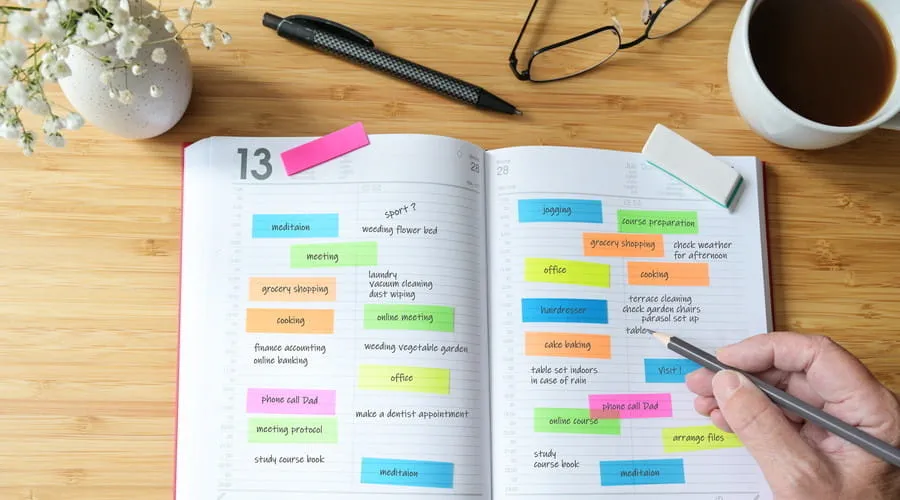 13
28
meditaion
sport ?
weeding flower bed
meeting
grocery shopping
laundry
vacuum cleaning
dust wiping
cooking
online meeting
finance accounting
online banking
weeding vegetable garden
office
phone call Dad
make a dentist appointment
meeting protocol
study course book
meditaion
28
jogging
course preparation
grocery shopping
check weather
for afternoon
office
cooking
hairdresser
terrace cleaning
check garden chairs
parasol set up
table
cake baking
table set indoors
in case of rain
Visit !
phone call Dad
online course
arrange files
study
course book
meditaion